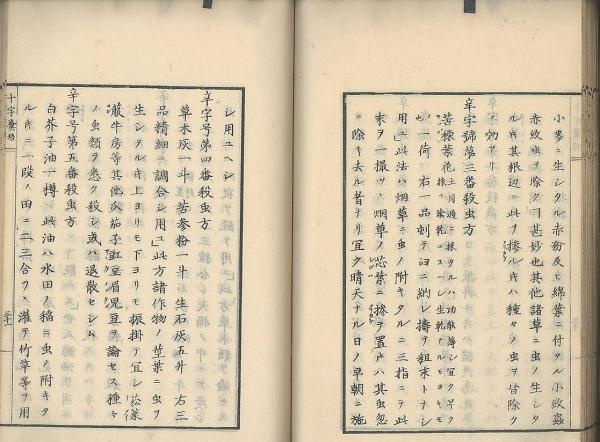 小麥ニ生シタル赤粉及ヒ綿葉ニ付タル小蚊蟲
赤蚊虫ヲ除クヿ甚妙也其他諸草ニ虫ノ生シタ
ルキ其根辺ニ此ヲ摻ルキハ種々ノ虫ヲ皆除ク
ノ効アリ
辛字號第三番殺虫方
苦楝葉花 土用過ニ採タルハ功
ノ一荷 右一品刺テ臼ニ納レ擣テ粗末トヲシ
用ユ此法ハ烟草ニ虫ノ附キタルニ三指ニテ此
末ヲ一撮ツヽ烟草ノ芯葉ニ摻テ置ケハ其虫忽
ニ除キ去ル者ナリ宜ク晴天ナル日ノ早朝ニ施
シ用ユヘシ
辛字号第四番殺虫方
草木灰一斗 苦参粉一斗 生石灰五升 右三
品精細ニ調合シ用ユ此方諸作物ノ茎葉ニ虫ヲ
生シタルキ上ヨリモ下ヨリモ振掛テ宜シ菘菉
菔牛房等其他瓜茄子豇豆眉児豆ヲ論セス種々
ノ虫類ヲ悉ク殺シ或ハ退散セシム
辛字号第五番殺虫方
白芥子油一樽 此油ハ水田ノ稲ニ虫ノ附キタ
ルキニ一段ノ田ニ二三合ツヽ灌テ竹箒等ヲ用
十字號